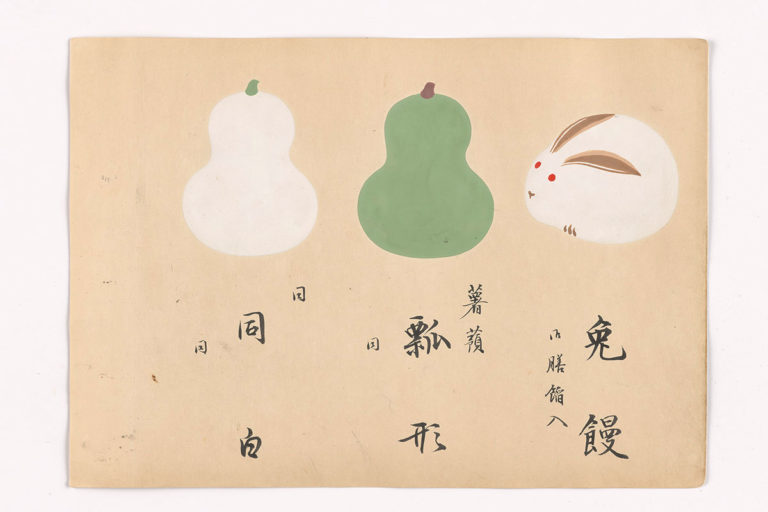 兎饅
御膳餡入
薯蕷
瓢形
同
同
同白
同